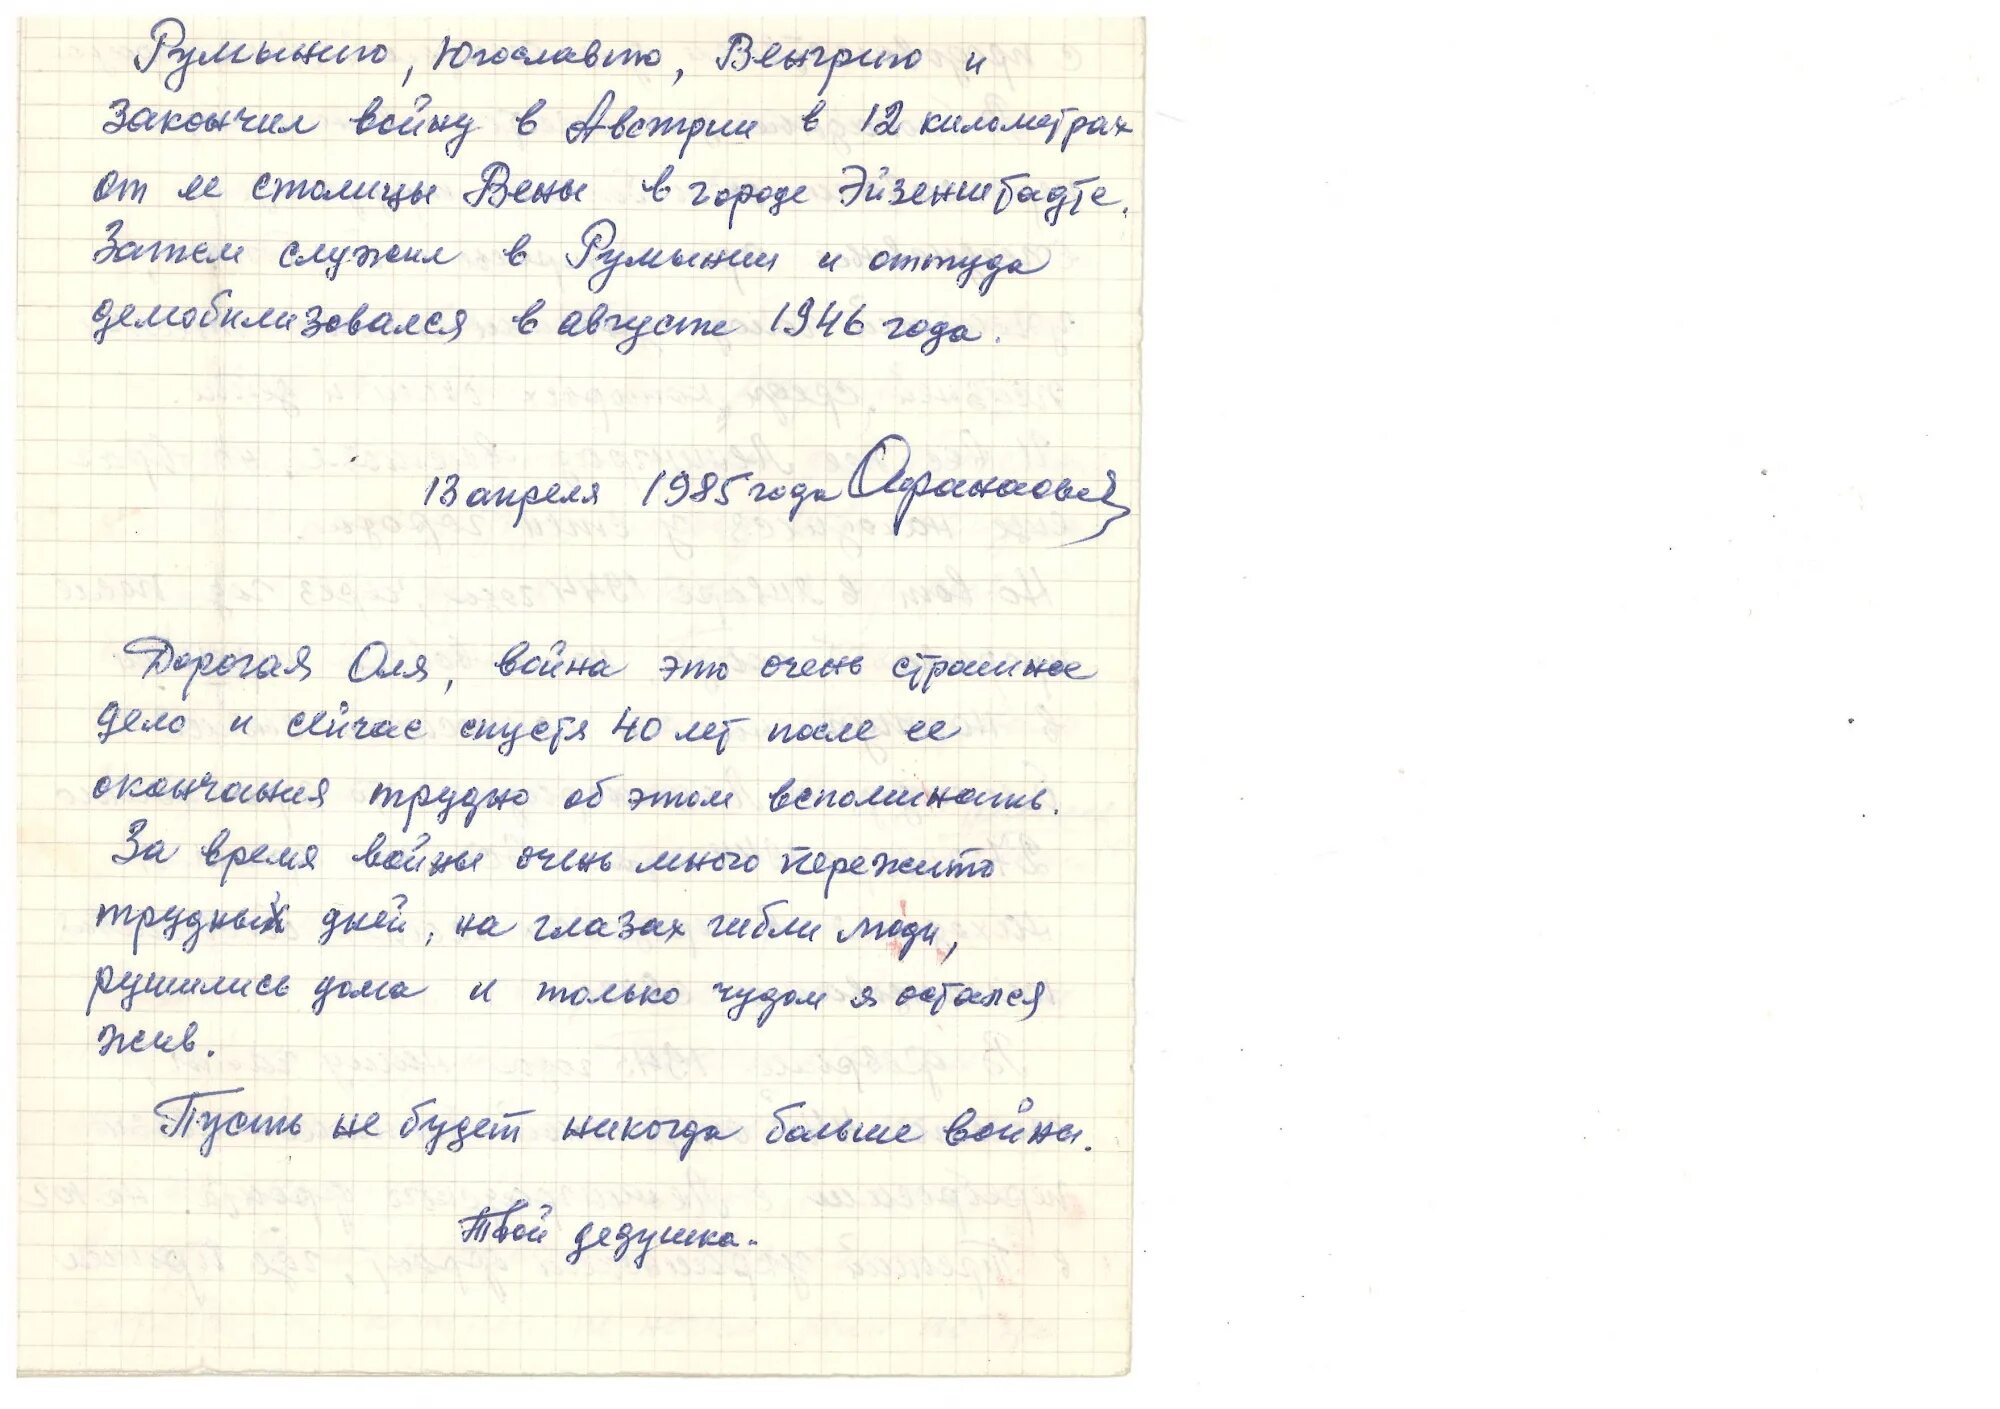 Румынию, Югославию, Венгрию и
закончил войну в Австрии в 12 километрах
от ее столицы Вены в городе Эйзенштадте.
Затем служил в Румынии и оттуда
демобилизовался в августе 1946 года.
13 апреля 1985 года Афанасьев
Дорогая Оля, война это очень страшное
дело и сейчас спустя 40 лет после ее
окончания трудно об этом вспоминать.
За время войны очень много пережито
трудных дней, на глазах гибли люди,
рушились дома и только чудом я остался
жив.
Пусть не будет никогда больше войны.
Твой дедушка.